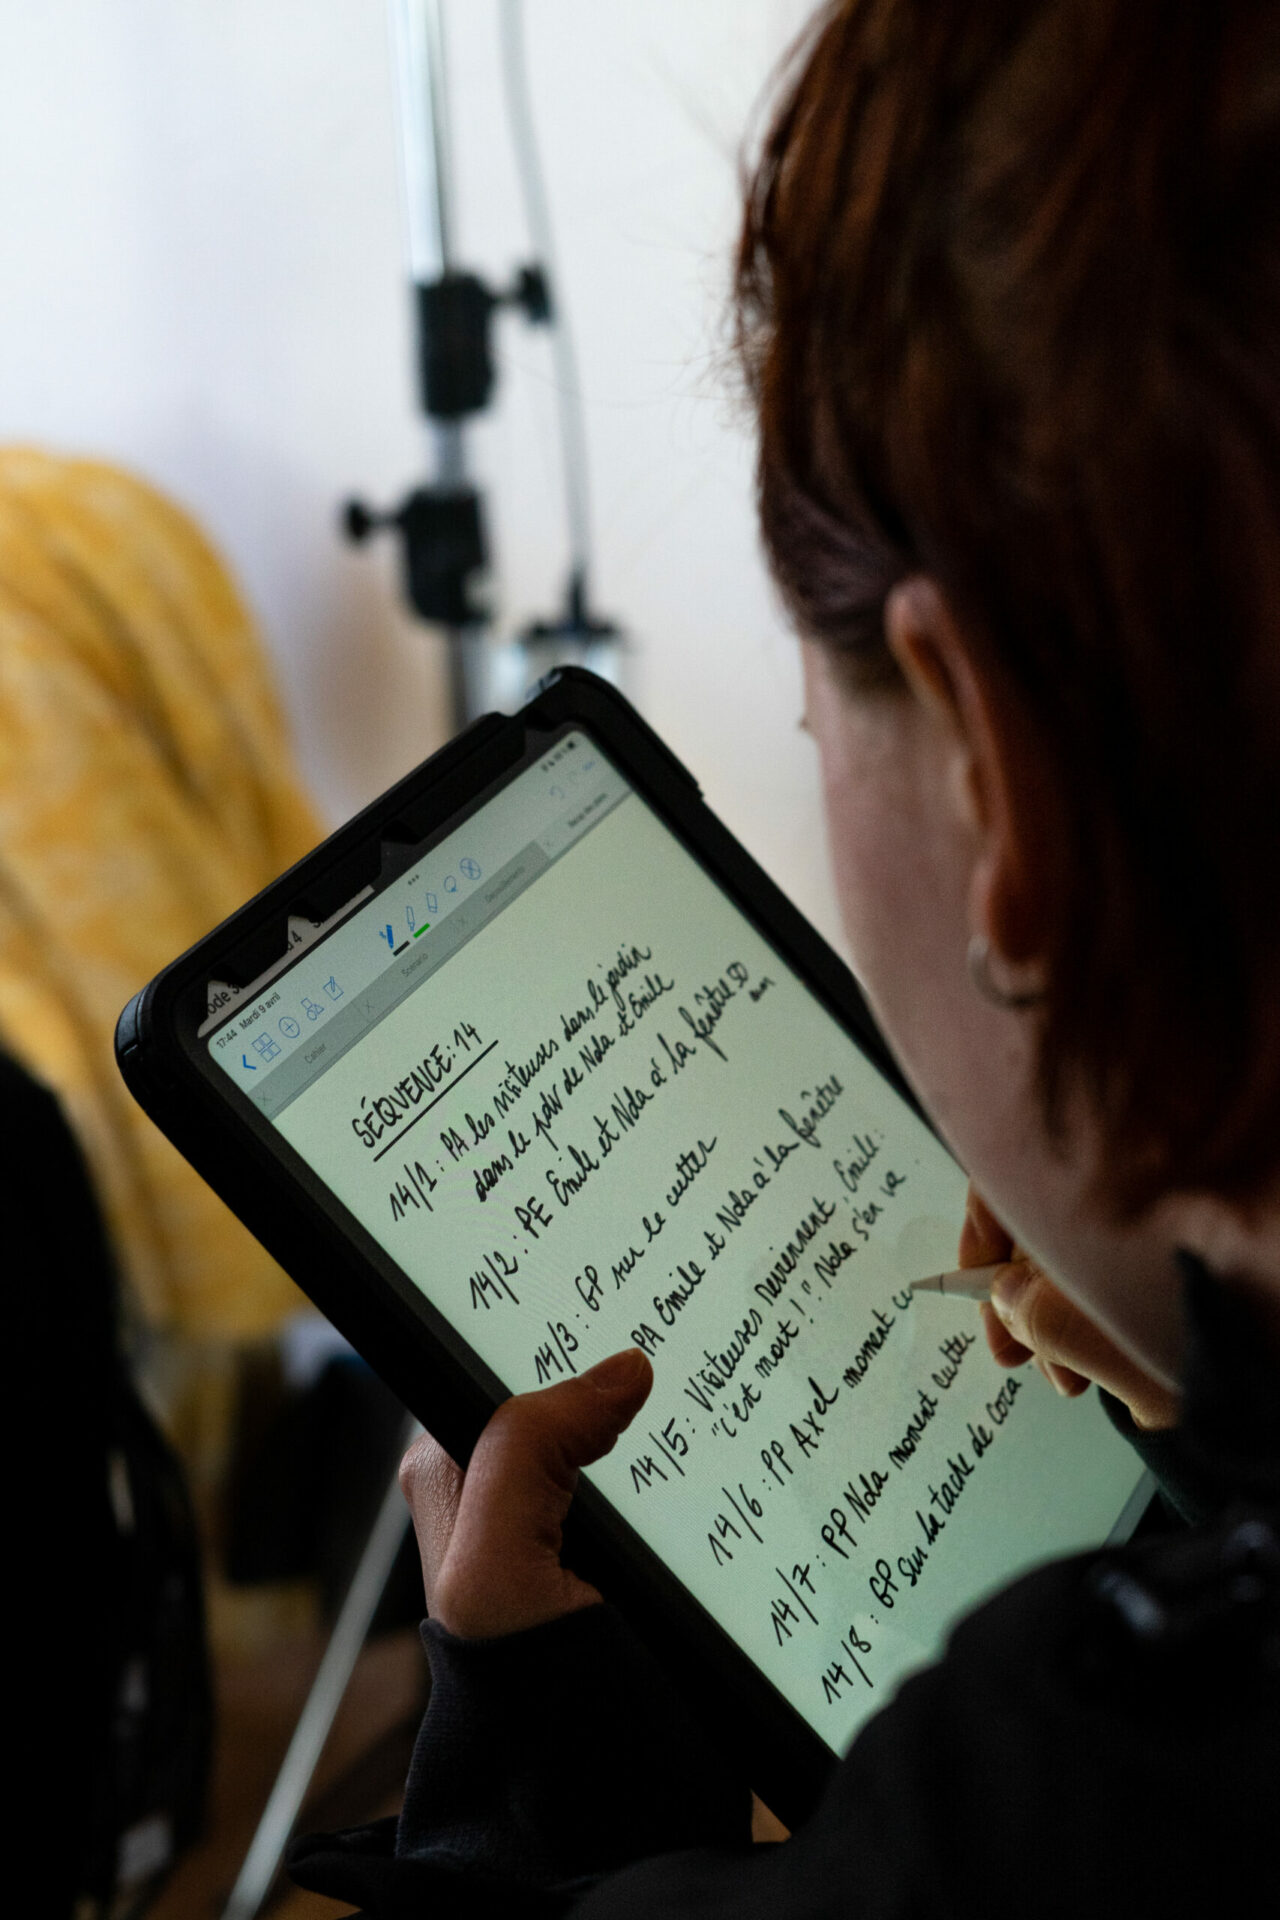 17:44 Mardi 9 avril
Cahier
Scénario
Découpage
SÉQUENCE: 14
14/1: PA les visiteuses dans le jardin
dans le pdv de Nda et Emile
14/2: PE Emile et Nda à la fenêtre 50
mm
14/3: GP sur le cutter
PA Emile et Nda à la fenêtre
14/5: Visiteuses reviennent, Emile:
"c'est mort!". Nda s'en va
14/6: PP Axel moment cu
14/7: PP Nda moment cutter
14/8: GP sur la tache de coca